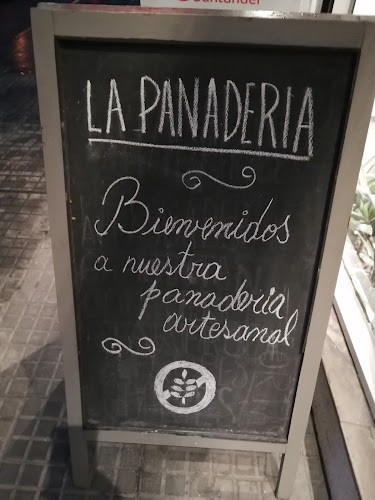 Santander
LA PANADERIA
Bienvenidos
a nuestra
panaderia
artesanal